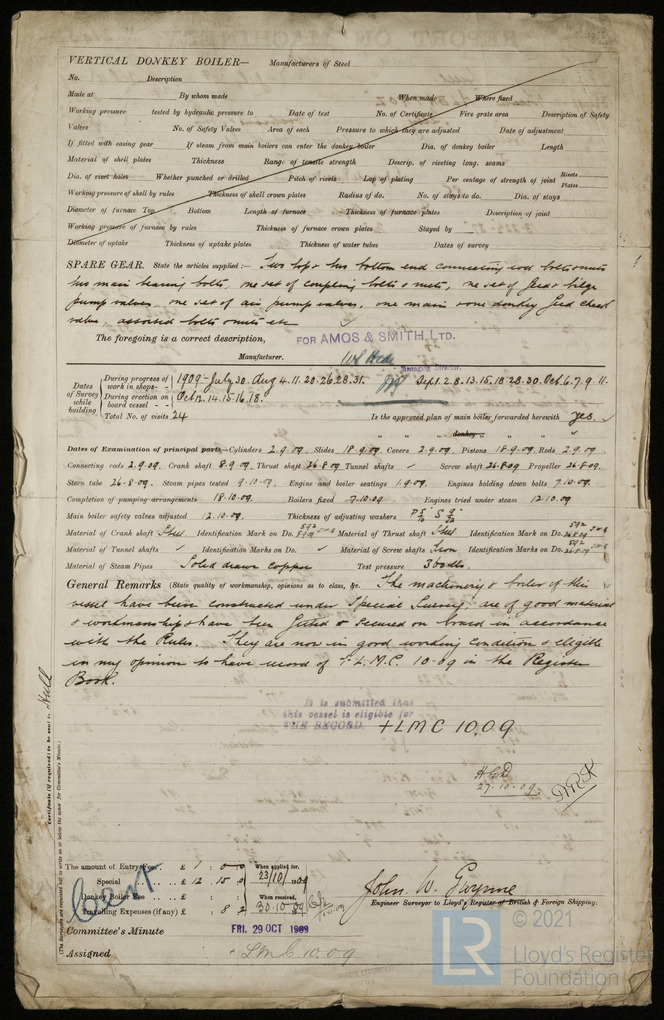 VERTICAL DONKEY BOILER— Manufacturers of Steel
No. Description
Made at By whom made When made Where fixed
Working pressure tested by hydraulic pressure to Date of test No. of Certificate Fire grate area Description of Safety
Valves No. of Safety Valves Area of each Pressure to which they are adjusted Date of adjustment
If fitted with easing gear If steam from main boilers can enter the donkey boiler Dia. of donkey boiler Length
Material of shell plates Thickness Range of tensile strength Descrip. of riveting long. seams
Dia. of rivet holes Whether punched or drilled Pitch of rivets Lap of plating Per centage of strength of joint Rivets Plates
Working pressure of shell by rules Thickness of shell crown plates Radius of do. No. of stays to do. Dia. of stays
Diameter of furnace Top Bottom Length of furnace Thickness of furnace plates Description of joint
Working pressure of furnace by rules Thickness of furnace crown plates Stayed by
Diameter of uptake Thickness of uptake plates Thickness of water tubes Dates of survey
SPARE GEAR. State the articles supplied:— Two top & two bottom end connecting rod bolts & nuts
two main bearing bolts, one set of coupling bolts & nuts, one set of feed & bilge
pump valves, one set of air pump valves, one main & one donkey feed check
valve, assorted bolts & nuts etc
The foregoing is a correct description,
FOR AMOS & SMITH, LTD.
Manufacturer.
Managing Director.
Dates of Survey while building
During progress of work in shops - - 1909 - July 30. Aug 4. 11. 20. 26. 28. 31. Sept 1. 2. 8. 13. 15. 18. 28. 30. Oct. 6. 7. 9. 11.
During erection on board vessel - - Oct 12. 14. 15. 16. 18.
Total No. of visits 24 Is the approved plan of main boiler forwarded herewith Yes.
" " " donkey " "
Dates of Examination of principal parts—Cylinders 2.9.09. Slides 18.9.09. Covers 2.9.09. Pistons 18.9.09. Rods 2.9.09.
Connecting rods 2.9.09. Crank shaft 8.9.09. Thrust shaft 26.8.09 Tunnel shafts ✓ Screw shaft 26.8.09 Propeller 26.8.09.
Stern tube 26.8.09. Steam pipes tested 9.10.09. Engine and boiler seatings 1.9.09. Engines holding down bolts 7.10.09.
Completion of pumping arrangements 18.10.09. Boilers fixed 7.10.09 Engines tried under steam 12.10.09
Main boiler safety valves adjusted 12.10.09. Thickness of adjusting washers
Material of Crank shaft Steel Identification Mark on Do. 592 Material of Thrust shaft Steel Identification Mark on Do. 592 26.8.09
Material of Tunnel shafts ✓ Identification Marks on Do. ✓ Material of Screw shafts Iron Identification Marks on Do. 592 26.8.09
Material of Steam Pipes Solid drawn copper Test pressure 360 lbs.
General Remarks (State quality of workmanship, opinions as to class, &c. The machinery & boiler of this
vessel have been constructed under Special Survey, are of good material
& workmanship & have been fitted & secured on board in accordance
with the Rules. They are now in good working condition & eligible
in my opinion to have record of + L.M.C. 10.09 in the Register
Book.
It is submitted that
this vessel is eligible for
THE RECORD. + LMC 10.09
27.10.09
Certificate (if required) to be sent to Hull
(The Surveyors are requested not to write on or below the space for Committee's Minute.)
The amount of Entry Fee . . £ 1 : 0 : 0 When applied for.
Special . . . . £ 12 : 15 : 0 23/10/09
Donkey Boiler Fee . . . £ When received.
Travelling Expenses (if any) £ : 8 : 2 30.10.09
John W. Gwynne
Engineer Surveyor to Lloyd's Register of British & Foreign Shipping.
Committee's Minute FRI. 29 OCT 1909
Assigned + LMC 10.09
© 2021
LR Lloyd's Register
Foundation